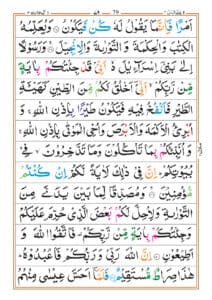 اَمْرًا فَاِنَّمَا يَقُوْلُ لَهٗ كُنْ فَيَكُوْنُ ۝ وَيُعَلِّمُهُ
الْكِتٰبَ وَالْحِكْمَةَ وَالتَّوْرٰىةَ وَالْاِنْجِيْلَ ۝ وَرَسُوْلًا
اِلٰى بَنِيْٓ اِسْرَآءِيْلَ ۙ اَنِّيْ قَدْ جِئْتُكُمْ بِاٰيَةٍ
مِّنْ رَّبِّكُمْ ۙ اَنِّيْٓ اَخْلُقُ لَكُمْ مِّنَ الطِّيْنِ كَهَيْـَٔةِ
الطَّيْرِ فَاَنْفُخُ فِيْهِ فَيَكُوْنُ طَيْرًا ۢ بِاِذْنِ اللّٰهِ ۚ وَ
اُبْرِئُ الْاَكْمَهَ وَالْاَبْرَصَ وَاُحْيِ الْمَوْتٰى بِاِذْنِ اللّٰهِ ۚ
وَ اُنَبِّئُكُمْ بِمَا تَاْكُلُوْنَ وَمَا تَدَّخِرُوْنَ ۙ فِيْ
بُيُوْتِكُمْ ؕ اِنَّ فِيْ ذٰلِكَ لَاٰيَةً لَّكُمْ اِنْ كُنْتُمْ
مُّؤْمِنِيْنَ ۝ وَمُصَدِّقًا لِّمَا بَيْنَ يَدَيَّ مِنَ
التَّوْرٰىةِ وَلِاُحِلَّ لَكُمْ بَعْضَ الَّذِيْ حُرِّمَ عَلَيْكُمْ
وَجِئْتُكُمْ بِاٰيَةٍ مِّنْ رَّبِّكُمْ ۫ فَاتَّقُوا اللّٰهَ وَ
اَطِيْعُوْنِ ۝ اِنَّ اللّٰهَ رَبِّيْ وَرَبُّكُمْ فَاعْبُدُوْهُ ؕ
هٰذَا صِرَاطٌ مُّسْتَقِيْمٌ ۝ فَلَمَّآ اَحَسَّ عِيْسٰى مِنْهُمُ